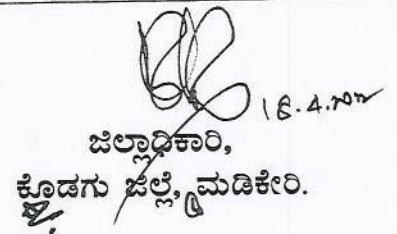 18.4.
ಜಿಲ್ಲಾಧಿಕಾರಿ,
ಕೊಡಗು ಜಿಲ್ಲೆ, ಮಡಿಕೇರಿ.